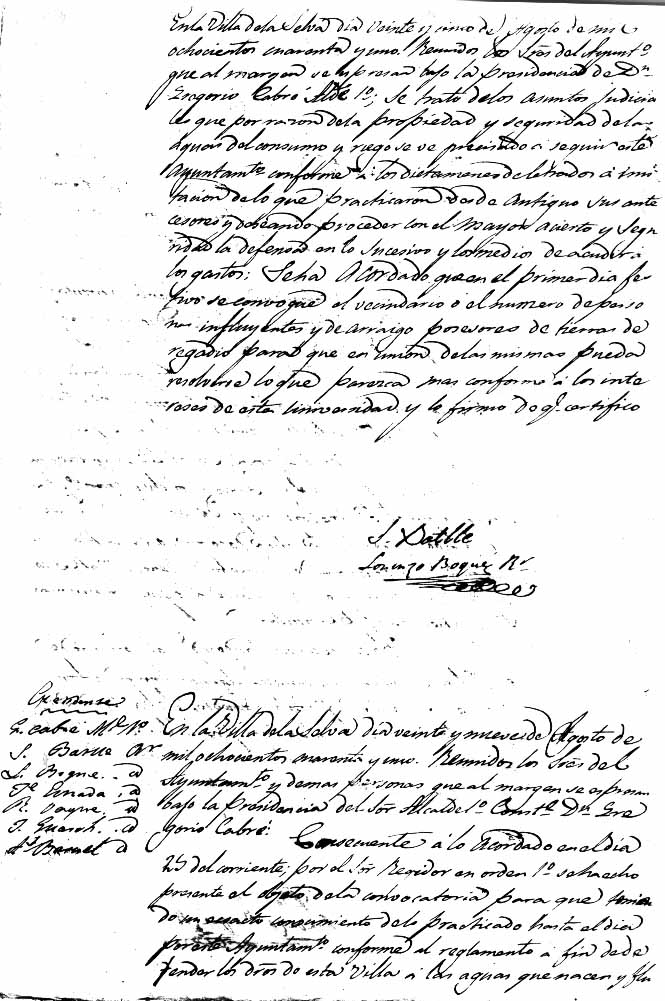 En la Villa de la Selva dia veinte y cinco de Agosto de mil
ochocientos cuarenta y uno. Reunidos los Sres del Ayuntº
que al margen se espresan bajo la presidencia de Dn
Gregorio Cabré Alde 1º; se trato de los asuntos judicia
les que por razon de la propiedad y seguridad de las
aguas del consumo y riego se ve precisado a seguir este
Ayuntamtº conforme a los dictamenes de letrados a imi
tacion de lo que practicaron desde Antiguo sus ante
cesores y deseando proceder con el mayor acierto y segu
ridad la defensa en lo sucesivo y los medios de acudir a
los gastos: Se ha Acordado que en el primer dia fes
tivo se convoque el vecindario o el numero de perso
nas influyentes y de arraigo posesores de tierras de
regadio para que en union de las mismas pueda
resolverse lo que paresca mas conforme á los inte
reses de esta Universidad y lo firmo do qe certifico
S. Batlle
Lorenzo Boque Rr
G. Cabré
S. Batlle
L. Boque
En la Villa de la Selva dia veinte y nueve de Agosto de
mil ochocientos cuarenta y uno. Reunidos los Sres del
Ayuntamtº y demas personas que al margen se espresan
bajo la Presidencia del Sor Alcalde 1º Constl Dn Gre
gorio Cabré:
Consecuente á lo Acordado en el dia
25 del corriente; por el Sor Regidor en orden 1º se ha echo
presente el objeto de la convocatoria para que tenien
do un exacto conocimiento de lo practicado hasta el dia
por este Ayuntamtº conforme al reglamento a fin de de
fender los dros de esta Villa a las aguas que nacen y flu